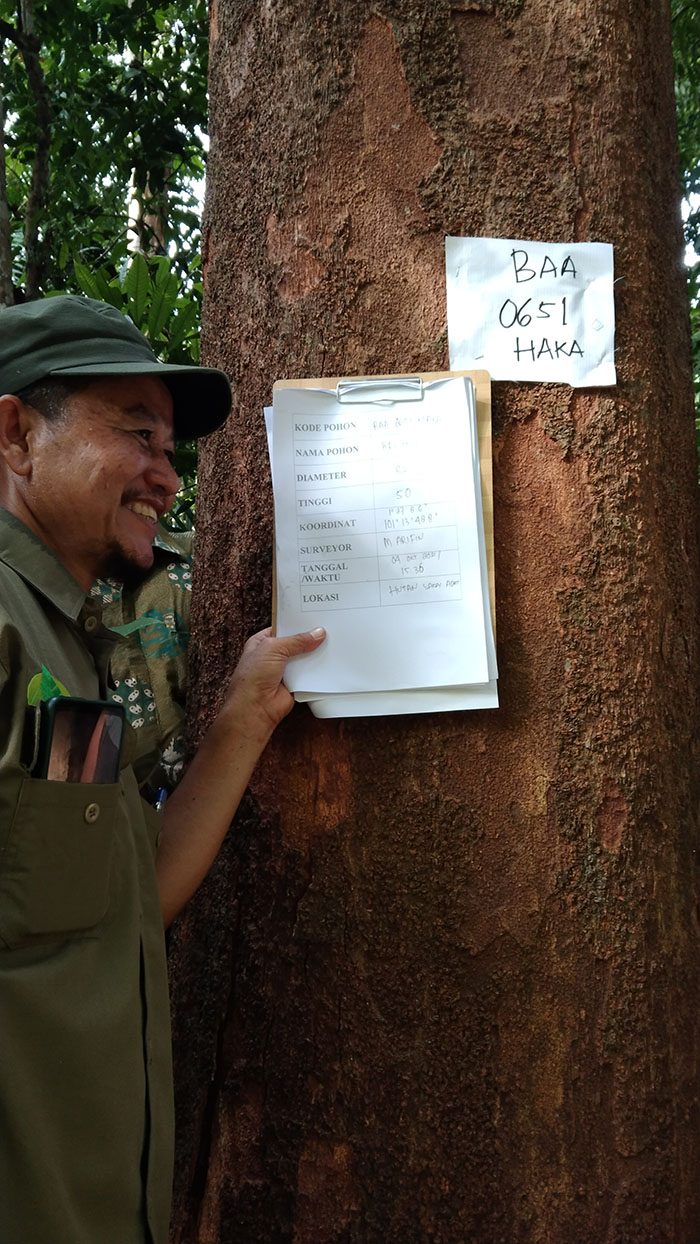 BAA
0651
HAKA
KODE POHON
NAMA POHON
DIAMETER
TINGGI 50
KOORDINAT
101° 13' 48.8"
SURVEYOR M ARIFIN
TANGGAL
/WAKTU 15.36
LOKASI HUTAN